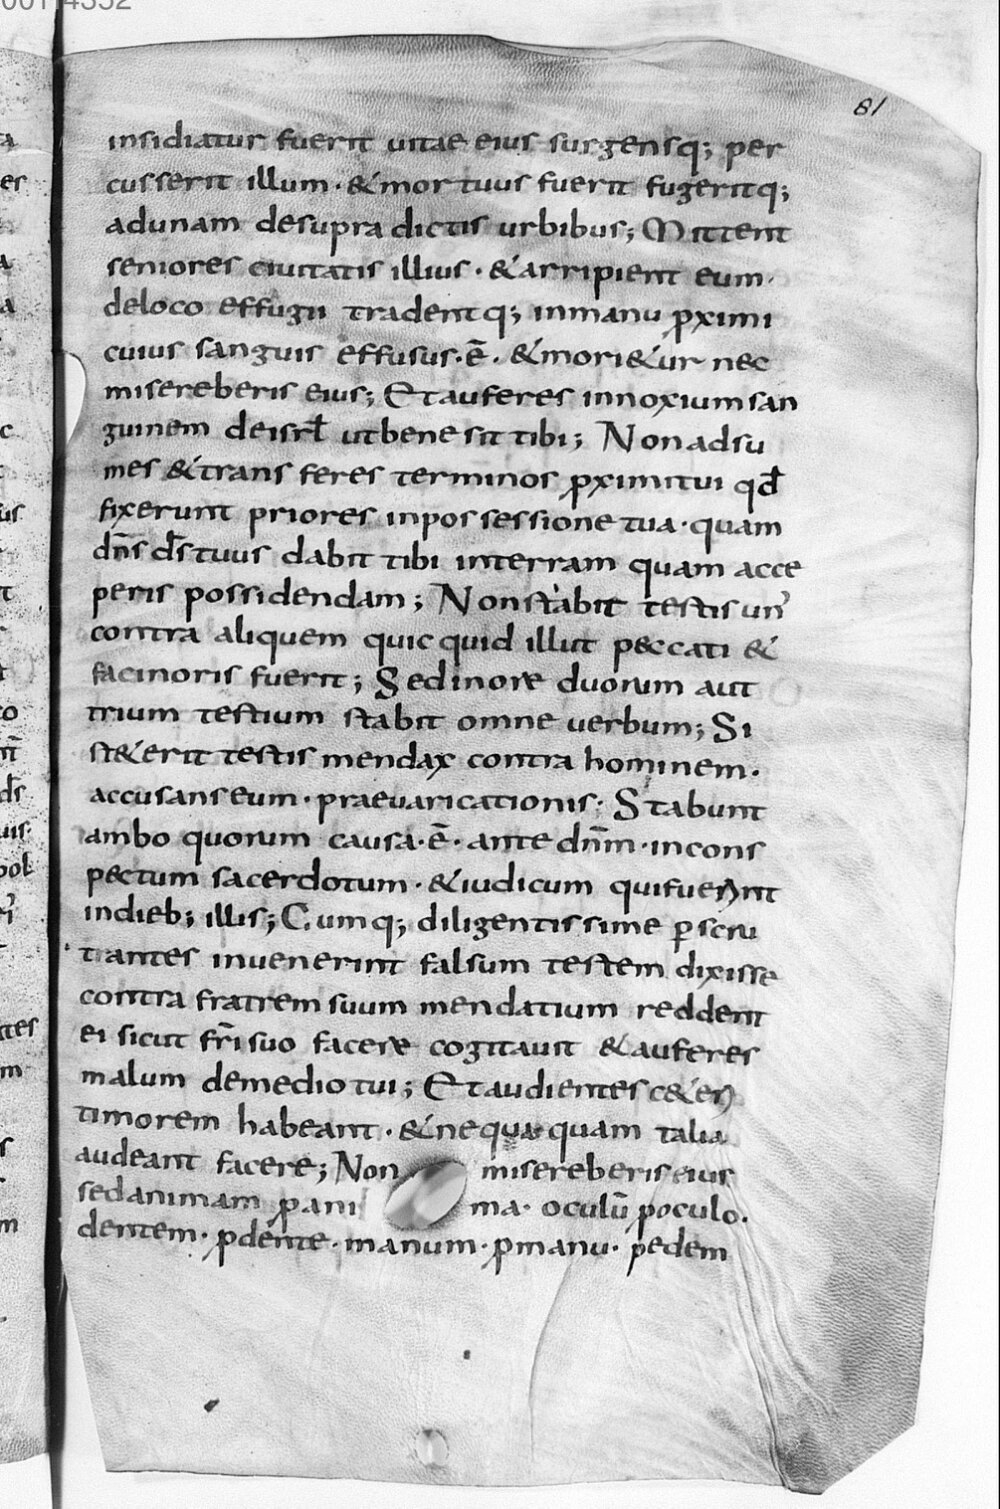 81
insidiatur fuerit uitae eius surgensq; per
cusserit illum · & mortuus fuerit fugeritq;
adunam desupra dictis urbibus; Mittent
seniores ciuitatis illius · & arripient eum ·
deloco effugii tradentq; inmanu ꝓximi
cuius sanguis effusus · ē · & mori&ur nec
misereberis eius; Et auferes innoxium san
guinem deisrł ut bene sit tibi; Non adsu
mes & trans feres terminos ꝓximi tui qđ
fixerunt priores inpossessione tua · quam
dn̄s ds̄ tuus dabit tibi interram quam acce
peris possidendam; Non stabit testis un'
contra aliquem quic quid illut peccati &
facinoris fuerit; Sed inore duorum aut
trium testium stabit omne uerbum; Si
st&erit testis mendax contra hominem ·
accusans eum · praeuaricationis · Stabunt
ambo quorum causa · ē · ante dn̄m · incons
pectum sacerdotum · & iudicum qui fuerint
indieb; illis; Cumq; diligentissime ꝑ scru
tantes inuenerint falsum testem dixisse
contra fratrem suum mendatium reddent
ei sicut fr̄i suo facere cogitauit & auferes
malum demedio tui; Et audientes c&eri
timorem habeant · & ne qua quam talia
audeant facere; Non misereberis eius
sed animam ꝓ ani ma · oculū ꝓ oculo ·
dentem · ꝓ dente · manum · ꝓ manu · pedem